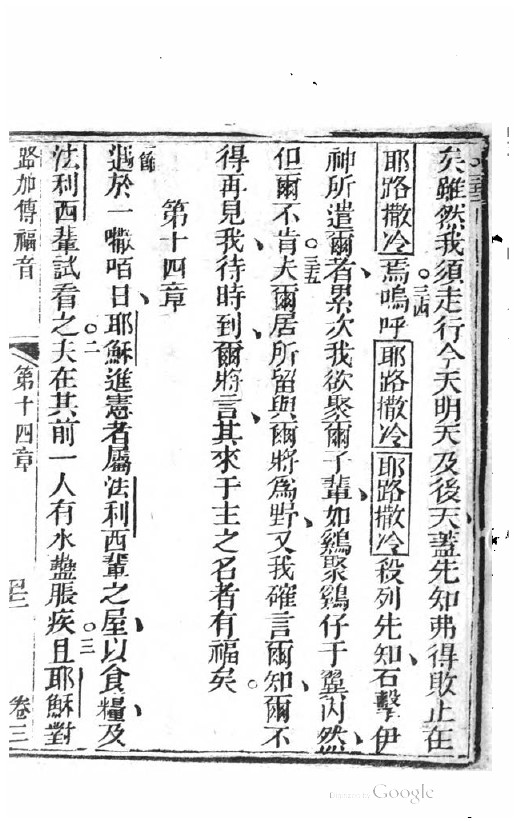 矣雖然我須走行今天明天及後天蓋先知弗得敗止在
耶路撒冷焉。三四嗚呼耶路撒冷耶路撒冷殺列先知石擊伊
神所遣爾者、累次我欲聚爾子輩、如鷄聚鷄仔于翼內、然
但爾不肯。三五夫爾居所留與爾將為野、又我確言爾知、爾不
得再見我、待時到、爾將言、其來于主之名者有福矣。
第十四章
遇於一嚫咟日、耶穌進憲者屬法利西輩之屋、以食糧、及
法利西輩試看之。二夫在其前一人有水蠱脹疾。三且耶穌對
路加傳福音 第十四章 卷三
Google